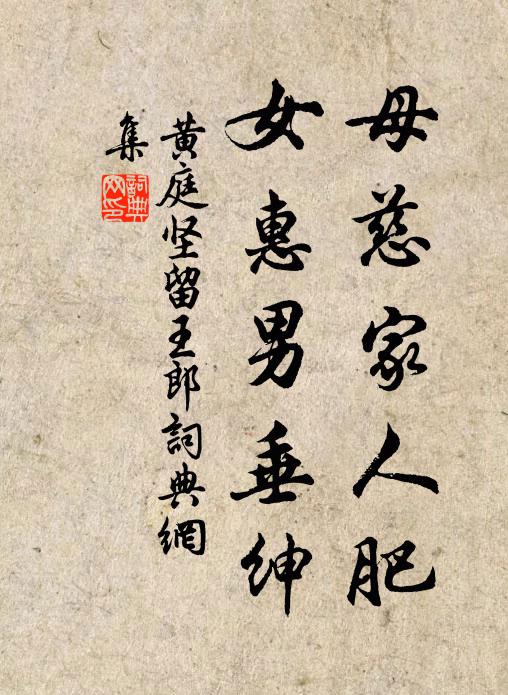 母慈家人肥
女惠男垂紳
黄庭坚留王郎詞典網
集
詞典
网印